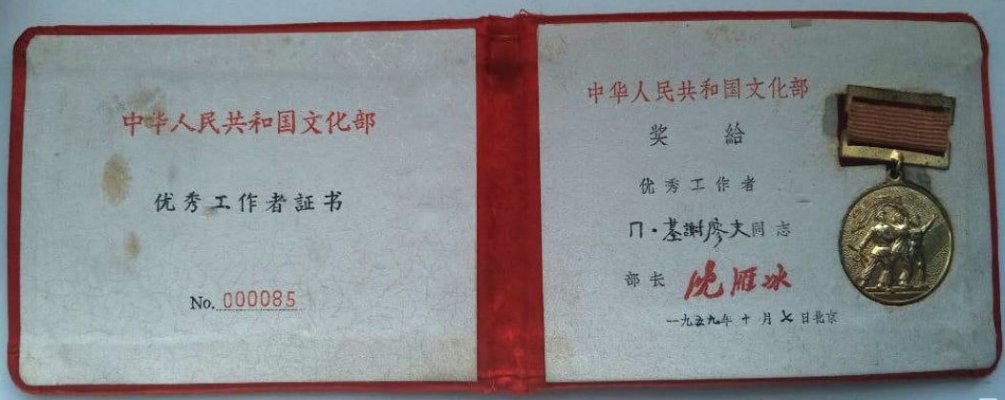 中华人民共和国文化部
优秀工作者証书
No. 000085
中华人民共和国文化部
奖給
优秀工作者
П·基謝廖夫同志
部长 沈雁冰
一九五九年十月七日北京